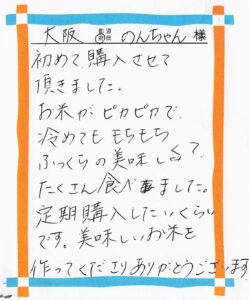 大阪 都道府県 のんちゃん 様
初めて、購入させて
頂きました。
お米がピカピカで、
冷めてももちもち
ふっくらの美味しさで、
たくさん食べました。
定期購入したいくらい
です。美味しいお米を
作ってくださりありがとうございます